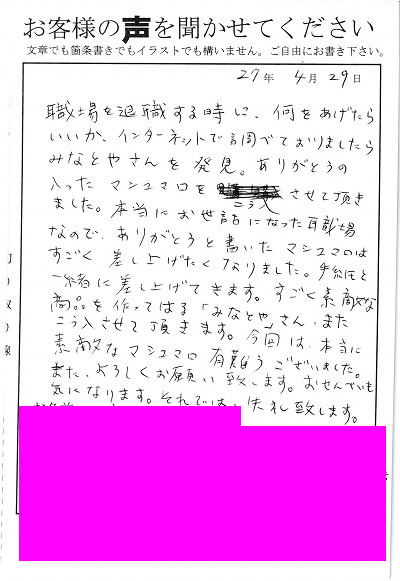 お客様の声を聞かせてください
文章でも箇条書きでもイラストでも構いません。ご自由にお書き下さい。
27年 4月 29日
職場を退職する時に、何をあげたら
いいか、インターネットで調べておりましたら
みなとやさんを発見。ありがとうの
入ったマシュマロを こう入 させて頂き
ました。本当にお世話になった職場
なので、ありがとうと書いたマシュマロは
すごく差し上げたくなりました。手紙と
一緒に差し上げてきます。すごく素敵な
商品を作ってはる「みなとやさん、また
こう入させて頂きます。今回は、本当に
素敵なマシュマロ有難うございました。
また、よろしくお願い致します。おせんべいも
気になります。それでは、失礼致します。
切り取り線